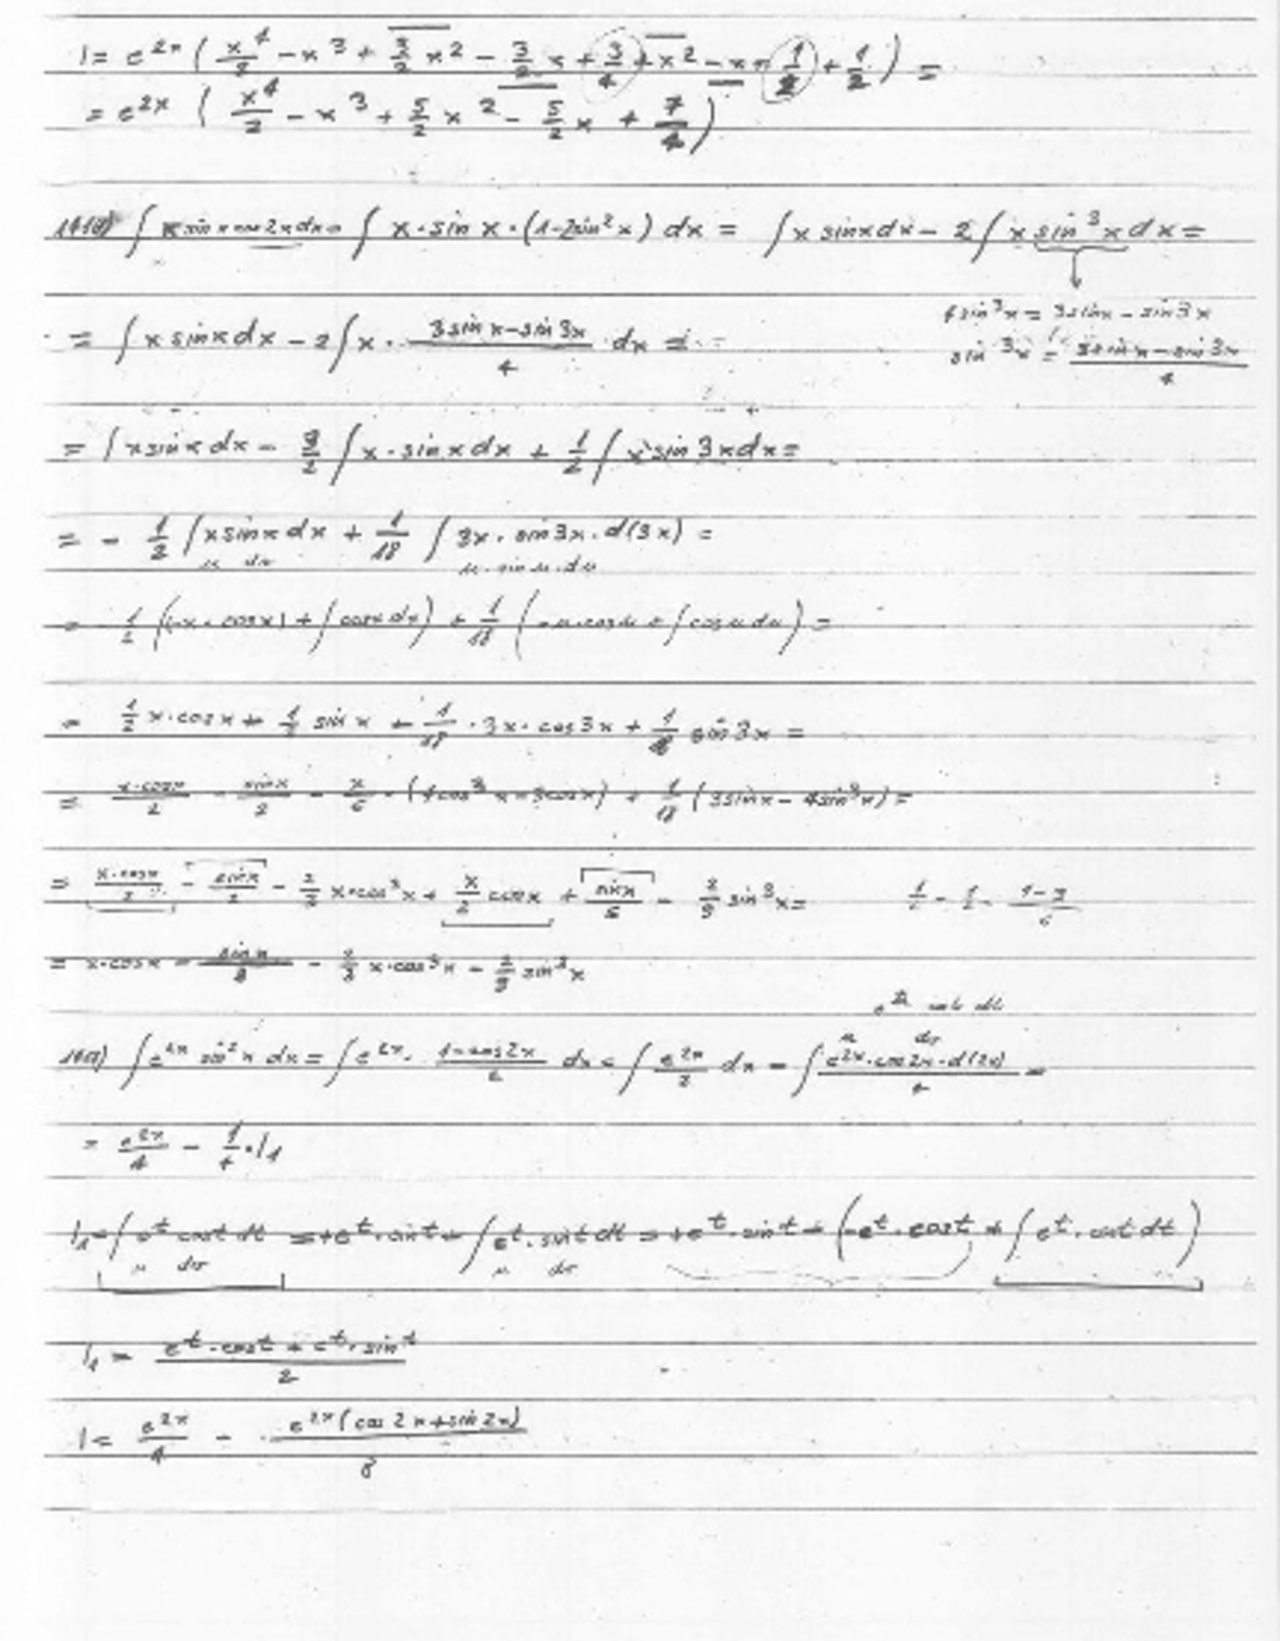 I = e^{2x} ( x^4/2 - x^3 + 3/2 x^2 - 3/2 x + 3/4 + x^2 - x + 1/2 + 1/2 ) =
= e^{2x} ( x^4/2 - x^3 + 5/2 x^2 - 5/2 x + 7/4 )
∫ x sin x cos 2x dx = ∫ x · sin x · (1-2sin²x) dx = ∫ x sinx dx - 2 ∫ x sin³x dx =
4sin³x = 3sinx - sin3x
= ∫ x sinx dx - 2 ∫ x · (3sinx - sin3x)/4 dx =
sin³x = (3sinx - sin3x)/4
= ∫ x sinx dx - 3/2 ∫ x · sinx dx + 1/2 ∫ x sin 3x dx =
= - 1/2 ∫ x sinx dx + 1/18 ∫ 3x · sin3x · d(3x) =
u dv u · sin u · du
= - 1/2 ( (-x · cosx) + ∫ cosx dx ) + 1/18 ( -u·cosu + ∫ cosu du ) =
= 1/2 x·cosx + 1/2 sin x + 1/18 · 3x · cos3x + 1/18 sin 3x =
= x·cosx/2 - sinx/2 - x/6 · (4cos³x - 3cosx) + 1/18 (3sinx - 4sin³x) =
= x·cosx/2 - sinx/2 - 2/3 x·cos³x + x/2 cosx + sinx/6 - 2/9 sin³x =
= x·cosx - sinx/3 - 2/3 x·cos³x - 2/9 sin³x
e^t cost dt
u dv
∫ e^{2x} sin²x dx = ∫ e^{2x} · (1-cos2x)/2 dx = ∫ e^{2x}/2 dx - ∫ e^{2x}·cos2x·d(2x)/4 =
= e^{2x}/4 - 1/4 · I₁
I₁ = ∫ e^t cost dt = +e^t · sint - ∫ e^t · sint dt = +e^t · sint - ( -e^t · cost + ∫ e^t · cost dt )
u dv u dv
I₁ = (e^t · cost + e^t · sint)/2
I = e^{2x}/4 - e^{2x}(cos 2x + sin 2x)/8